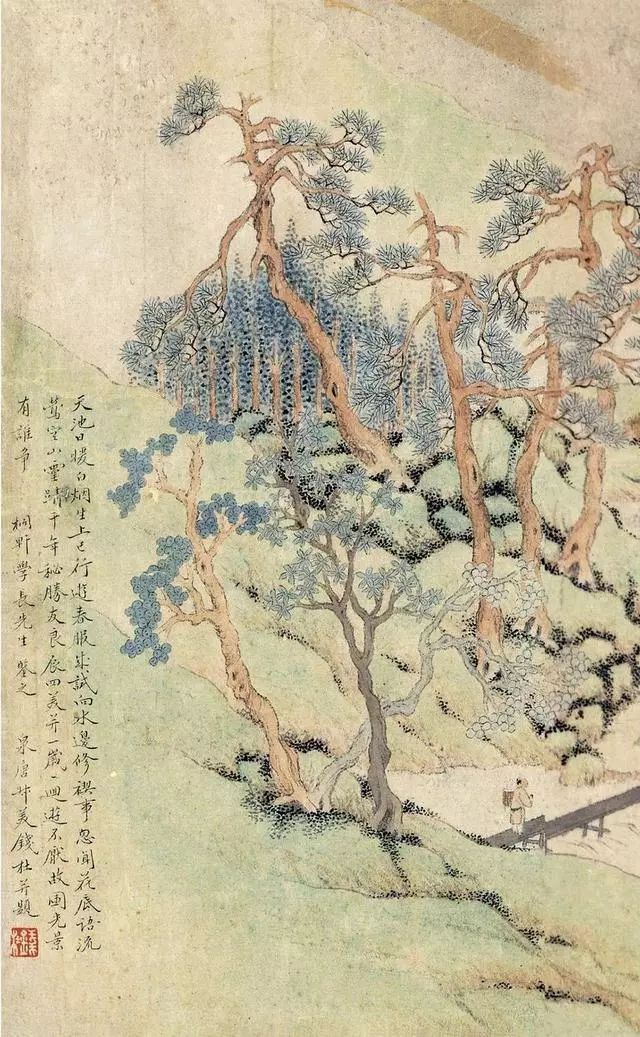 天池日暖白烟生上巳行遊春服成試向水邊修禊事忽聞花底語流
鶯空山靈蹟十年秘勝友良辰四美并一歲一迴遊不厭故園光景
有誰争 桐野學長先生鑒之 泉唐叔美錢杜并題